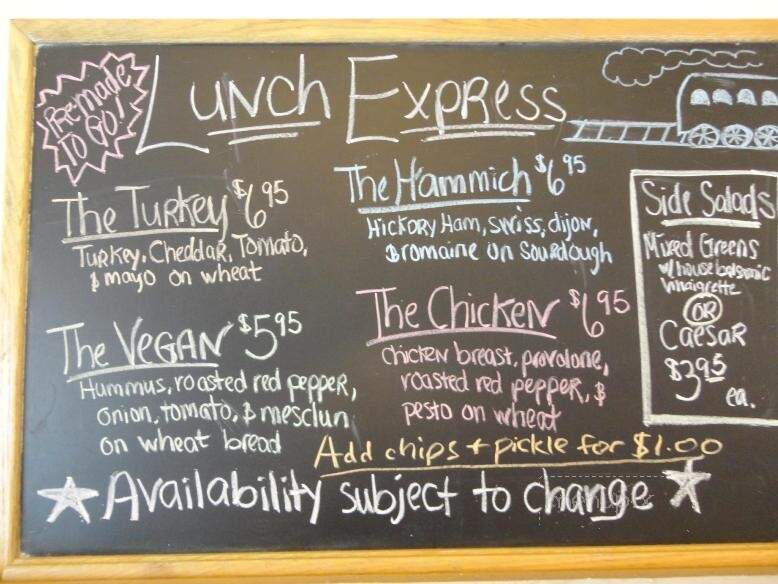 Premade
TO GO!
Lunch Express
The Turkey $6.95
Turkey, Cheddar, Tomato,
& mayo on wheat
The Hammich $6.95
Hickory Ham, swiss, dijon,
& romaine on Sourdough
The Vegan $5.95
Hummus, roasted red pepper,
onion, tomato, & mesclun
on wheat bread
The Chicken $6.95
Chicken breast, provolone,
roasted red pepper, &
pesto on wheat
Side Salads
Mixed Greens
w/ house balsamic
vinaigrette
OR
Caesar
$3.95
ea.
Add chips + pickle for $1.00
Availability subject to change